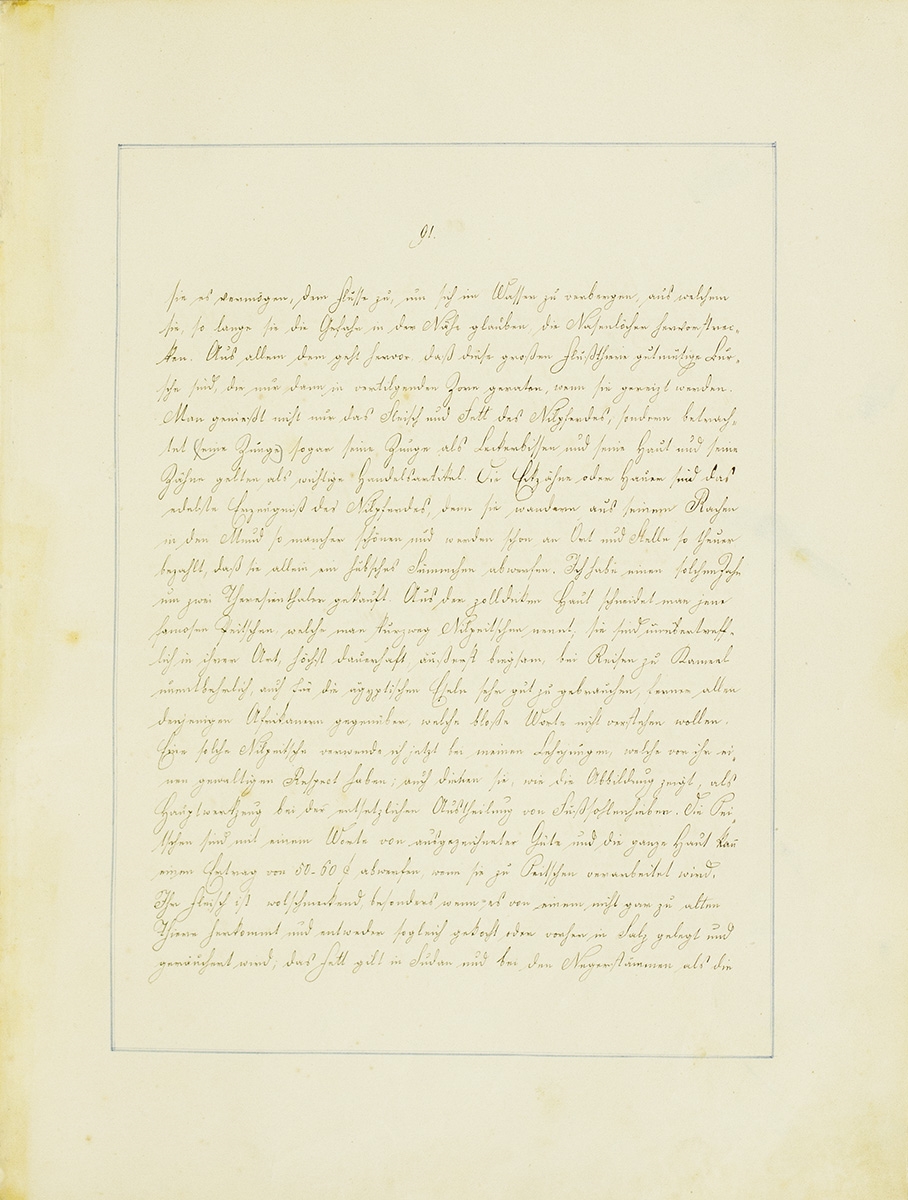 91.
sie es vermögen, dem Flusse zu, um sich im Wasser zu verbergen, aus welchem
sie, so lange sie die Gefahr in der Nähe glauben, die Nasenlöcher hervorstrec-
ken. Aus allem dem geht hervor, daß diese großen Flußthiere gutmütige Bur-
sche sind, die nur dann in vertilgenden Zorn geraten, wenn sie gereizt werden.
Man genießt nicht nur das Fleisch und Fett des Nilpferdes, sondern betrach-
tet (seine Zunge) sogar seine Zunge als Leckerbissen und seine Haut und seine
Zähne gelten als wichtige Handelsartikel. Die Eckzähne oder Hauer sind das
edelste Erzeugniß des Nilpferdes, denn sie wandern aus seinem Rachen
in den Mund so mancher schönen und werden schon an Ort und Stelle so theuer
bezahlt, daß sie allein ein hübsches Sümmchen abwerfen. Ich habe einen solchen Zahn
um zwei Theresienthaler gekauft. Aus der zolldicken Haut schneidet man jene
famosen Peitschen, welche man kurzweg Nilpeitschen nennt; sie sind unübertreff-
lich in ihrer Art, höchst dauerhaft, äußerst biegsam, bei Reisen zu Kameel
unentbehrlich, auch für die ägyptischen Eseln sehr gut zu gebrauchen, ferner allen
denjenigen Afrikanern gegenüber, welche bloße Worte nicht verstehen wollen.
Eine solche Nilpeitsche verwende ich jetzt bei meinen welche von ihr ei-
nen gewaltigen Respect haben; auch dienen sie, wie die Abbildung zeigt, als
Hauptwerkzeug bei der entsetzlichen Austheilung von Fußsohlenhieben. Die Pei-
tschen sind mit einem Worte von ausgezeichneter Güte und die ganze Haut kann
einen Ertrag von 50-60 f abwerfen, wenn sie zu Peitschen verarbeitet wird.
Ihr Fleisch ist wolschmeckend, besonders wenn es von einem nicht gar zu alten
Thiere herkommt und entweder sogleich gekocht oder vorher in Salz gelegt und
geräuchert wird; das Fett gilt in Sudan und bei den Negerstämmen als die